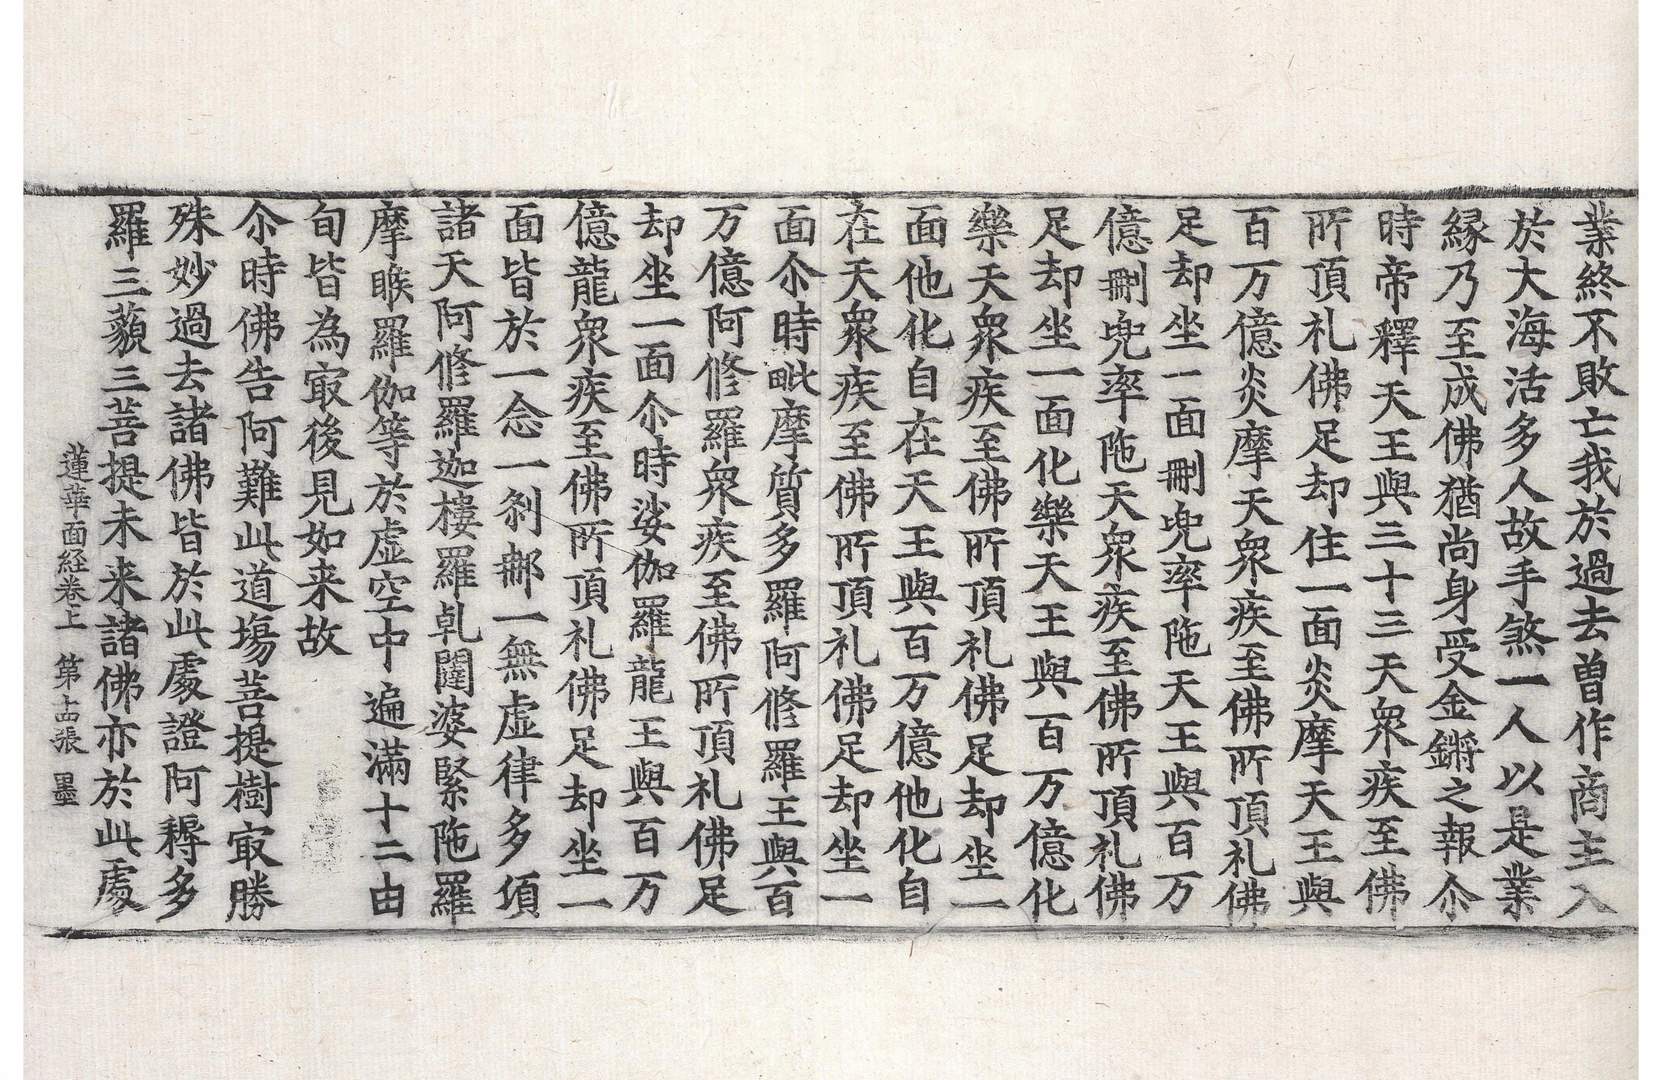 業終不敗亡我於過去曽作商主入
於大海活多人故手煞一人以是業
緣乃至成佛猶尚身受金鏘之報尒
時帝釋天王與三十三天衆疾至佛
所頂礼佛足却住一面炎摩天王與
百万億炎摩天衆疾至佛所頂礼佛
足却坐一面刪兜率陁天王與百万
億刪兜率陁天衆疾至佛所頂礼佛
足却坐一面化樂天王與百万億化
樂天衆疾至佛所頂礼佛足却坐一
面他化自在天王與百万億他化自
在天衆疾至佛所頂礼佛足却坐一
面尒時毗摩質多羅阿脩羅王與百
万億阿脩羅衆疾至佛所頂礼佛足
却坐一面尒時娑伽羅龍王與百万
億龍衆疾至佛所頂礼佛足却坐一
面皆於一念一刹𨚗一無虛律多項
諸天阿脩羅迦樓羅乹闥婆緊陁羅
摩睺羅伽等於虛空中遍滿十二由
旬皆為㝡後見如来故
尒時佛告阿難此道塲菩提樹㝡勝
殊妙過去諸佛皆於此處證阿耨多
羅三藐三菩提未来諸佛亦於此處
蓮華面経卷上 第十四張 墨